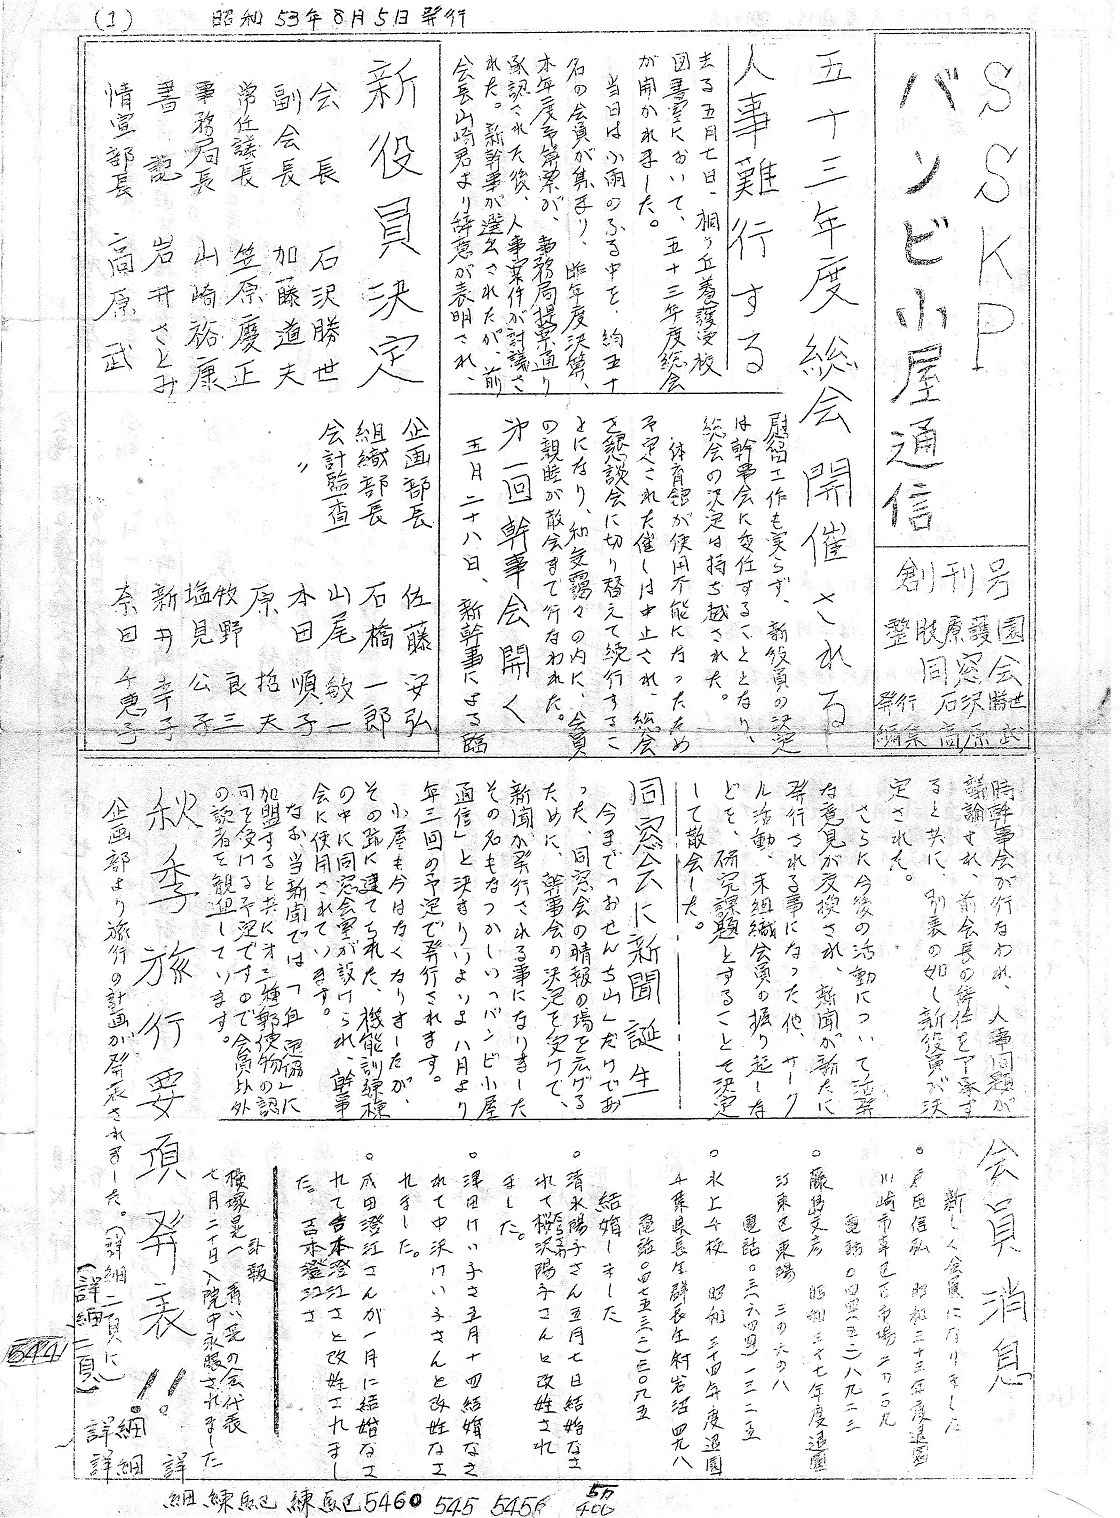 (1)
昭和53年8月5日発行
SSKP
バンビ小屋通信
創刊号
整肢療護園
同窓会
発行 石沢勝世
編集 高原武
五十三年度総会開催される
人事難行する
去る五月七日、桐ヶ丘養護学校
図書室において、五十三年度総会
が開かれました。
当日は小雨のふる中を、約五十
名の会員が集まり、昨年度決算、
本年度予算案が、事務局提案通り
承認された後、人事案件が討議さ
れた。新幹事が選出されたが、前
会長山崎君より辞意が表明され、
慰留工作も実らず、新役員の決定
は幹事会に委任することとなり、
総会の決定は持ち越された。
体育館が使用不能になったため
予定された催しは中止され、総会
を懇談会に切り替えて続行するこ
とになり、和気靄々の内に、会員
の親睦が散会まで行なわれた。
第一回幹事会開く
五月二十八日、新幹事による臨
新役員決定
会長 石沢勝世
副会長 加藤道夫
常任議長 笠原慶正
事務局長 山崎裕康
書記 岩井さとみ
情宣部長 高原武
企画部長 佐藤安弘
組織部長 石橋一郎
会計監査 山尾敏一
〃 本田順子
原哲夫
牧野良三
塩見公子
新井幸子
奈田千恵子
時幹事会が行なわれ、人事問題が
議論され、前会長の辞任を了承す
ると共に、別表の如し新役員が決
定された。
さらに今後の活動について活発
な意見が交換され、新聞が新たに
発行される事になった他、サーク
ル活動、未組織会員の掘り起しな
どを、研究課題とすることを決定
して散会した。
同窓会に新聞誕生
今まで「おせんち山」だけであ
った、同窓会の情報の場を広げる
ために、幹事会の決定を受けて、
新聞が発行される事になりました
その名もなつかしい「バンビ小屋
通信」と決まりいよいよ八月より
年三回の予定で発行されます。
小屋も今はなくなりましたが、
その跡に建てられた、機能訓練棟
の中に同窓会室が設けられ、幹事
会に使用されています。
なお、当新聞では「身連協」に
加盟すると共にオ三種郵便物の認
可を使ける予定ですので会員以外
の読者を歓迎しています。
秋季旅行要項発表!!
企画部より旅行の計画が発表されました。(詳細二頁に)
(詳細二頁)
会員消息
新しく会員になりました
○戸田信弘 昭和三十三年度退園
川崎市幸区下市場二の一〇九
電話〇四四(五二)八九二三
○藤島文彦 昭和三十七年度退園
江東区東陽 三の六の八
電話〇三(六四四)一三二五
○水上千枝 昭和三十四年度退園
千葉県長生郡長生村岩沼四九八
電話〇四七五三(二)三〇九五
結婚しました
○清水陽子さん五月七日結婚なさ
れて桜沢陽子さんと改姓され
ました。
○澤田けい子さ五月十四結婚なさ
れて中沢けい子さんと改姓なさ
れました。
○成田澄江さんが一月に結婚なさ
れて吉本澄江さと改姓されまし
た。 吉本澄江さ
訃報
横塚晃一 青い芝の会代表
七月二十日入院中永眠されました
544
詳細
詳細 詳
細 練馬区 練馬区5460 545 545